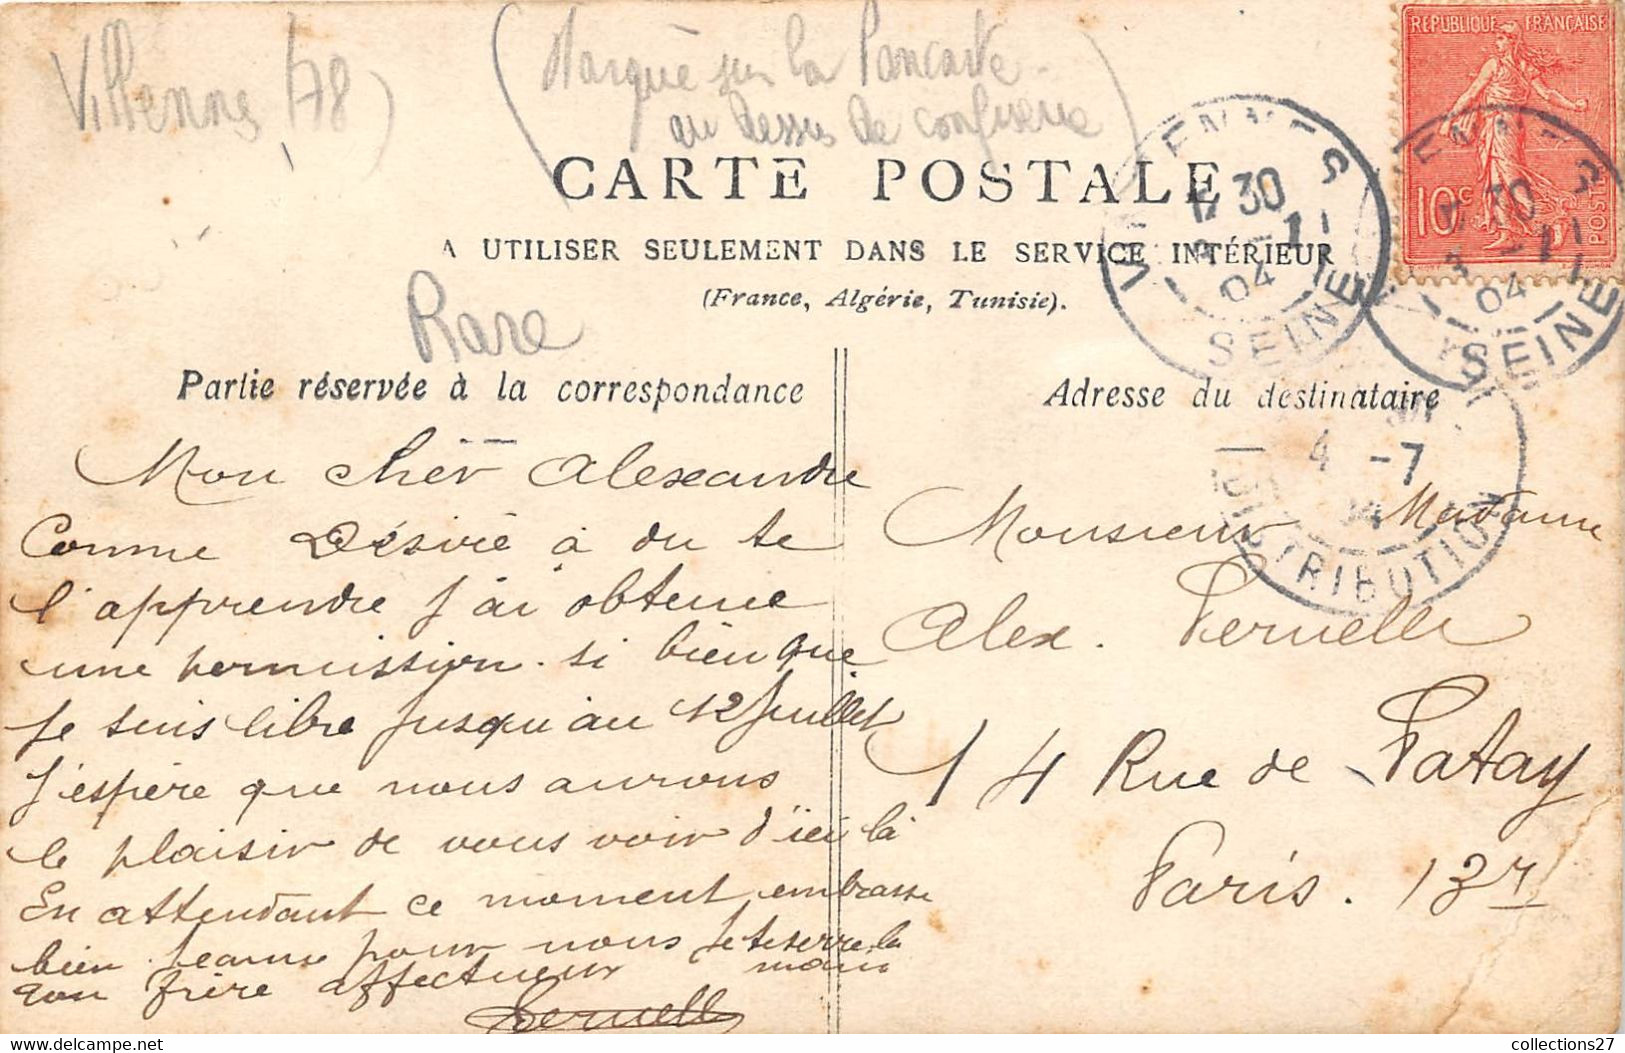 Villenne (78)
(Marqué sur la Pancarte
au dessus de confiserie)
RÉPUBLIQUE FRANÇAISE
10c
POSTES
CARTE POSTALE
A UTILISER SEULEMENT DANS LE SERVICE INTÉRIEUR
(France, Algérie, Tunisie).
Rare
30
04
SEINE
30
04
SEINE
4 -7
04
DISTRIBUTION
Partie réservée à la correspondance
Mon cher Alexandre
Comme Désiré à du te
l'apprendre j'ai obtenue
une permission. si bien que
je suis libre jusqu'au 12 Juillet
J'espère que nous aurons
le plaisir de vous voir d'ici là
En attendant ce moment embrasse
bien Jeanne pour nous je te serre la
main
ton frère affectueux
Pernelle
Adresse du destinataire
Monsieur Madame
Alex. Pernelle
14 Rue de Patay
Paris. 13e
collections27